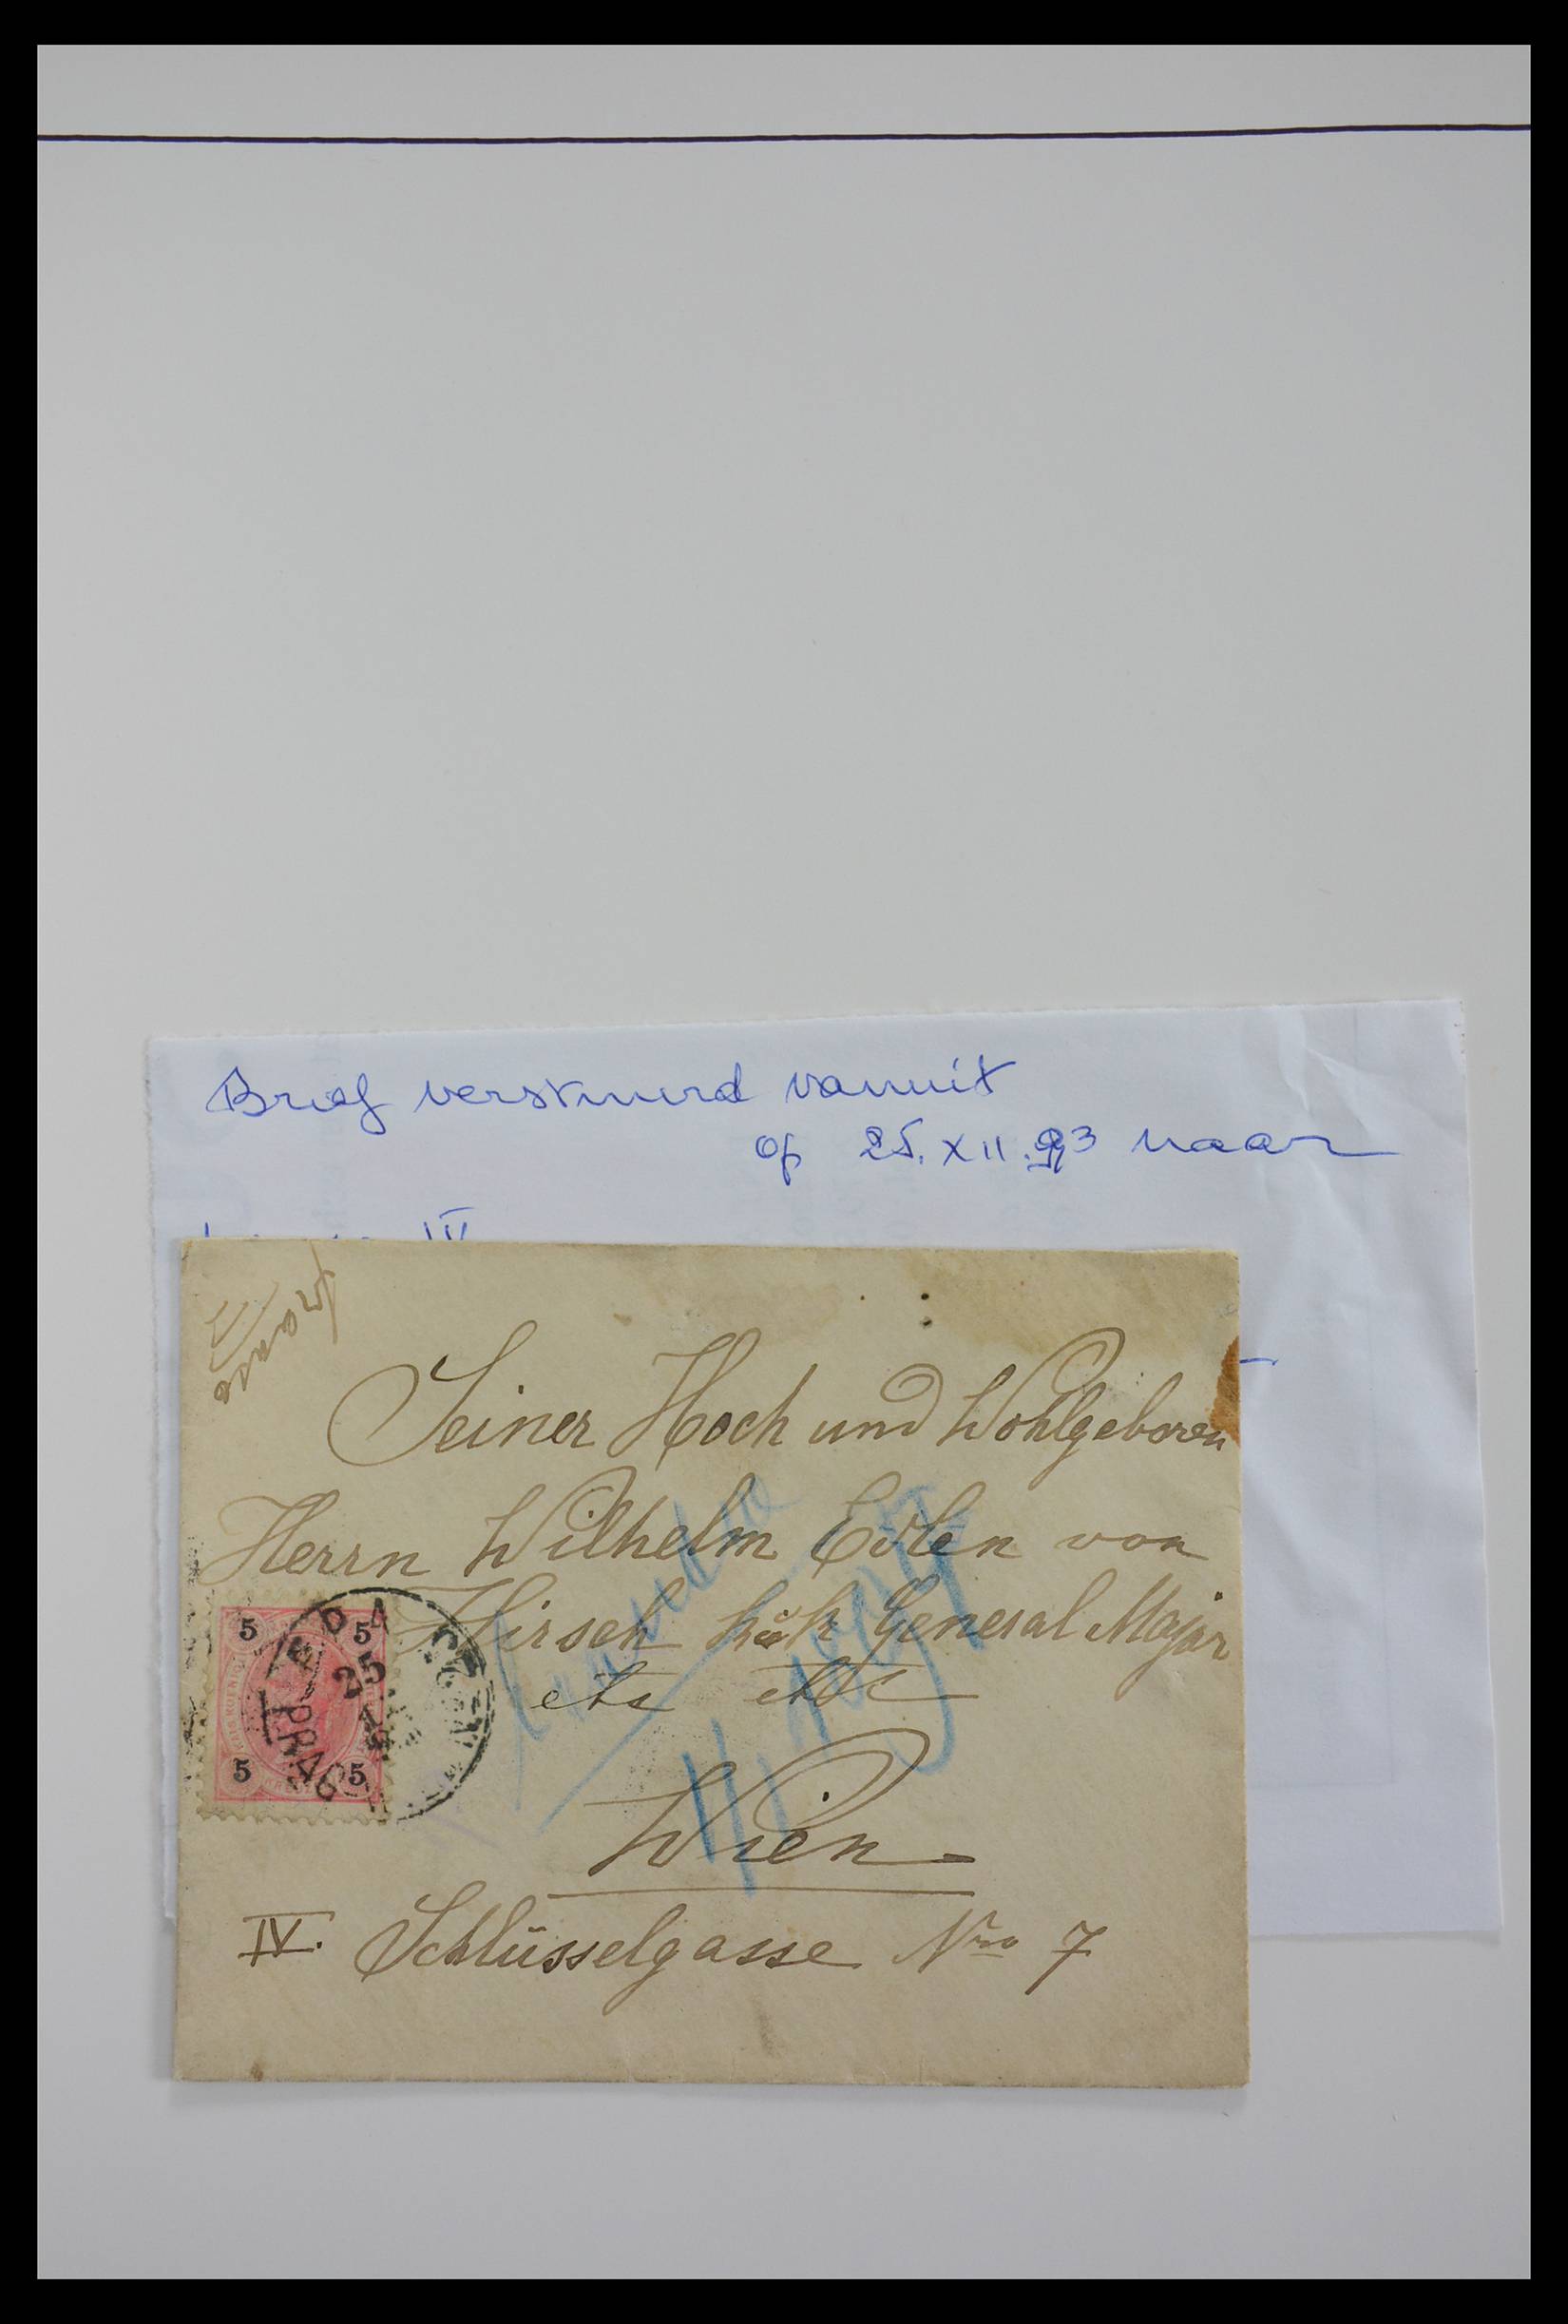 Brief verstuurd vanuit
op 25.XII.93 naar
IV
Seiner Hoch und Wohlgeboren
Herrn Wilhelm Edlen von
Hirsch k&k General Major
etc etc
Wien
IV. Schlüsselgasse Nro 7
5 5
25
5 5